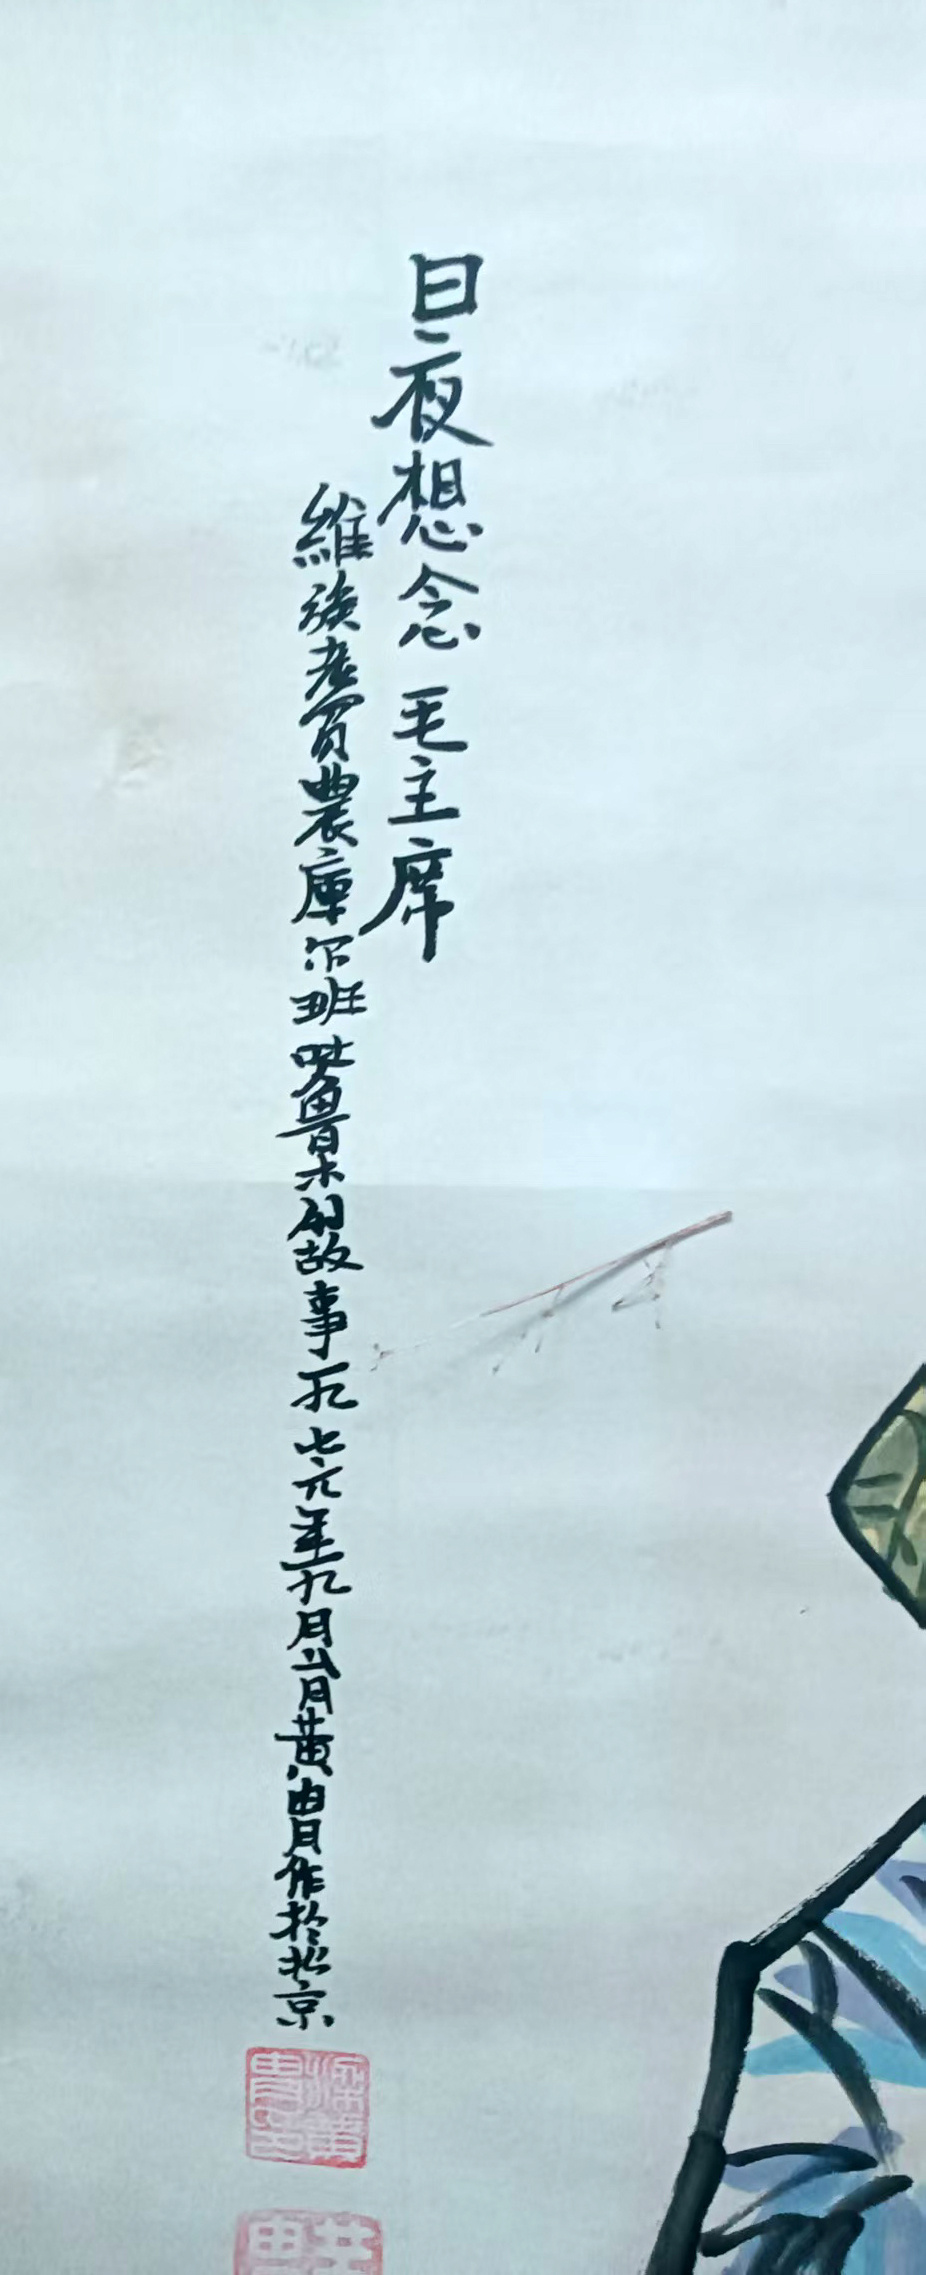 日夜想念毛主席
維族老貧農庫尔班吐魯木的故事一九七六年九月六日黄胄作於北京